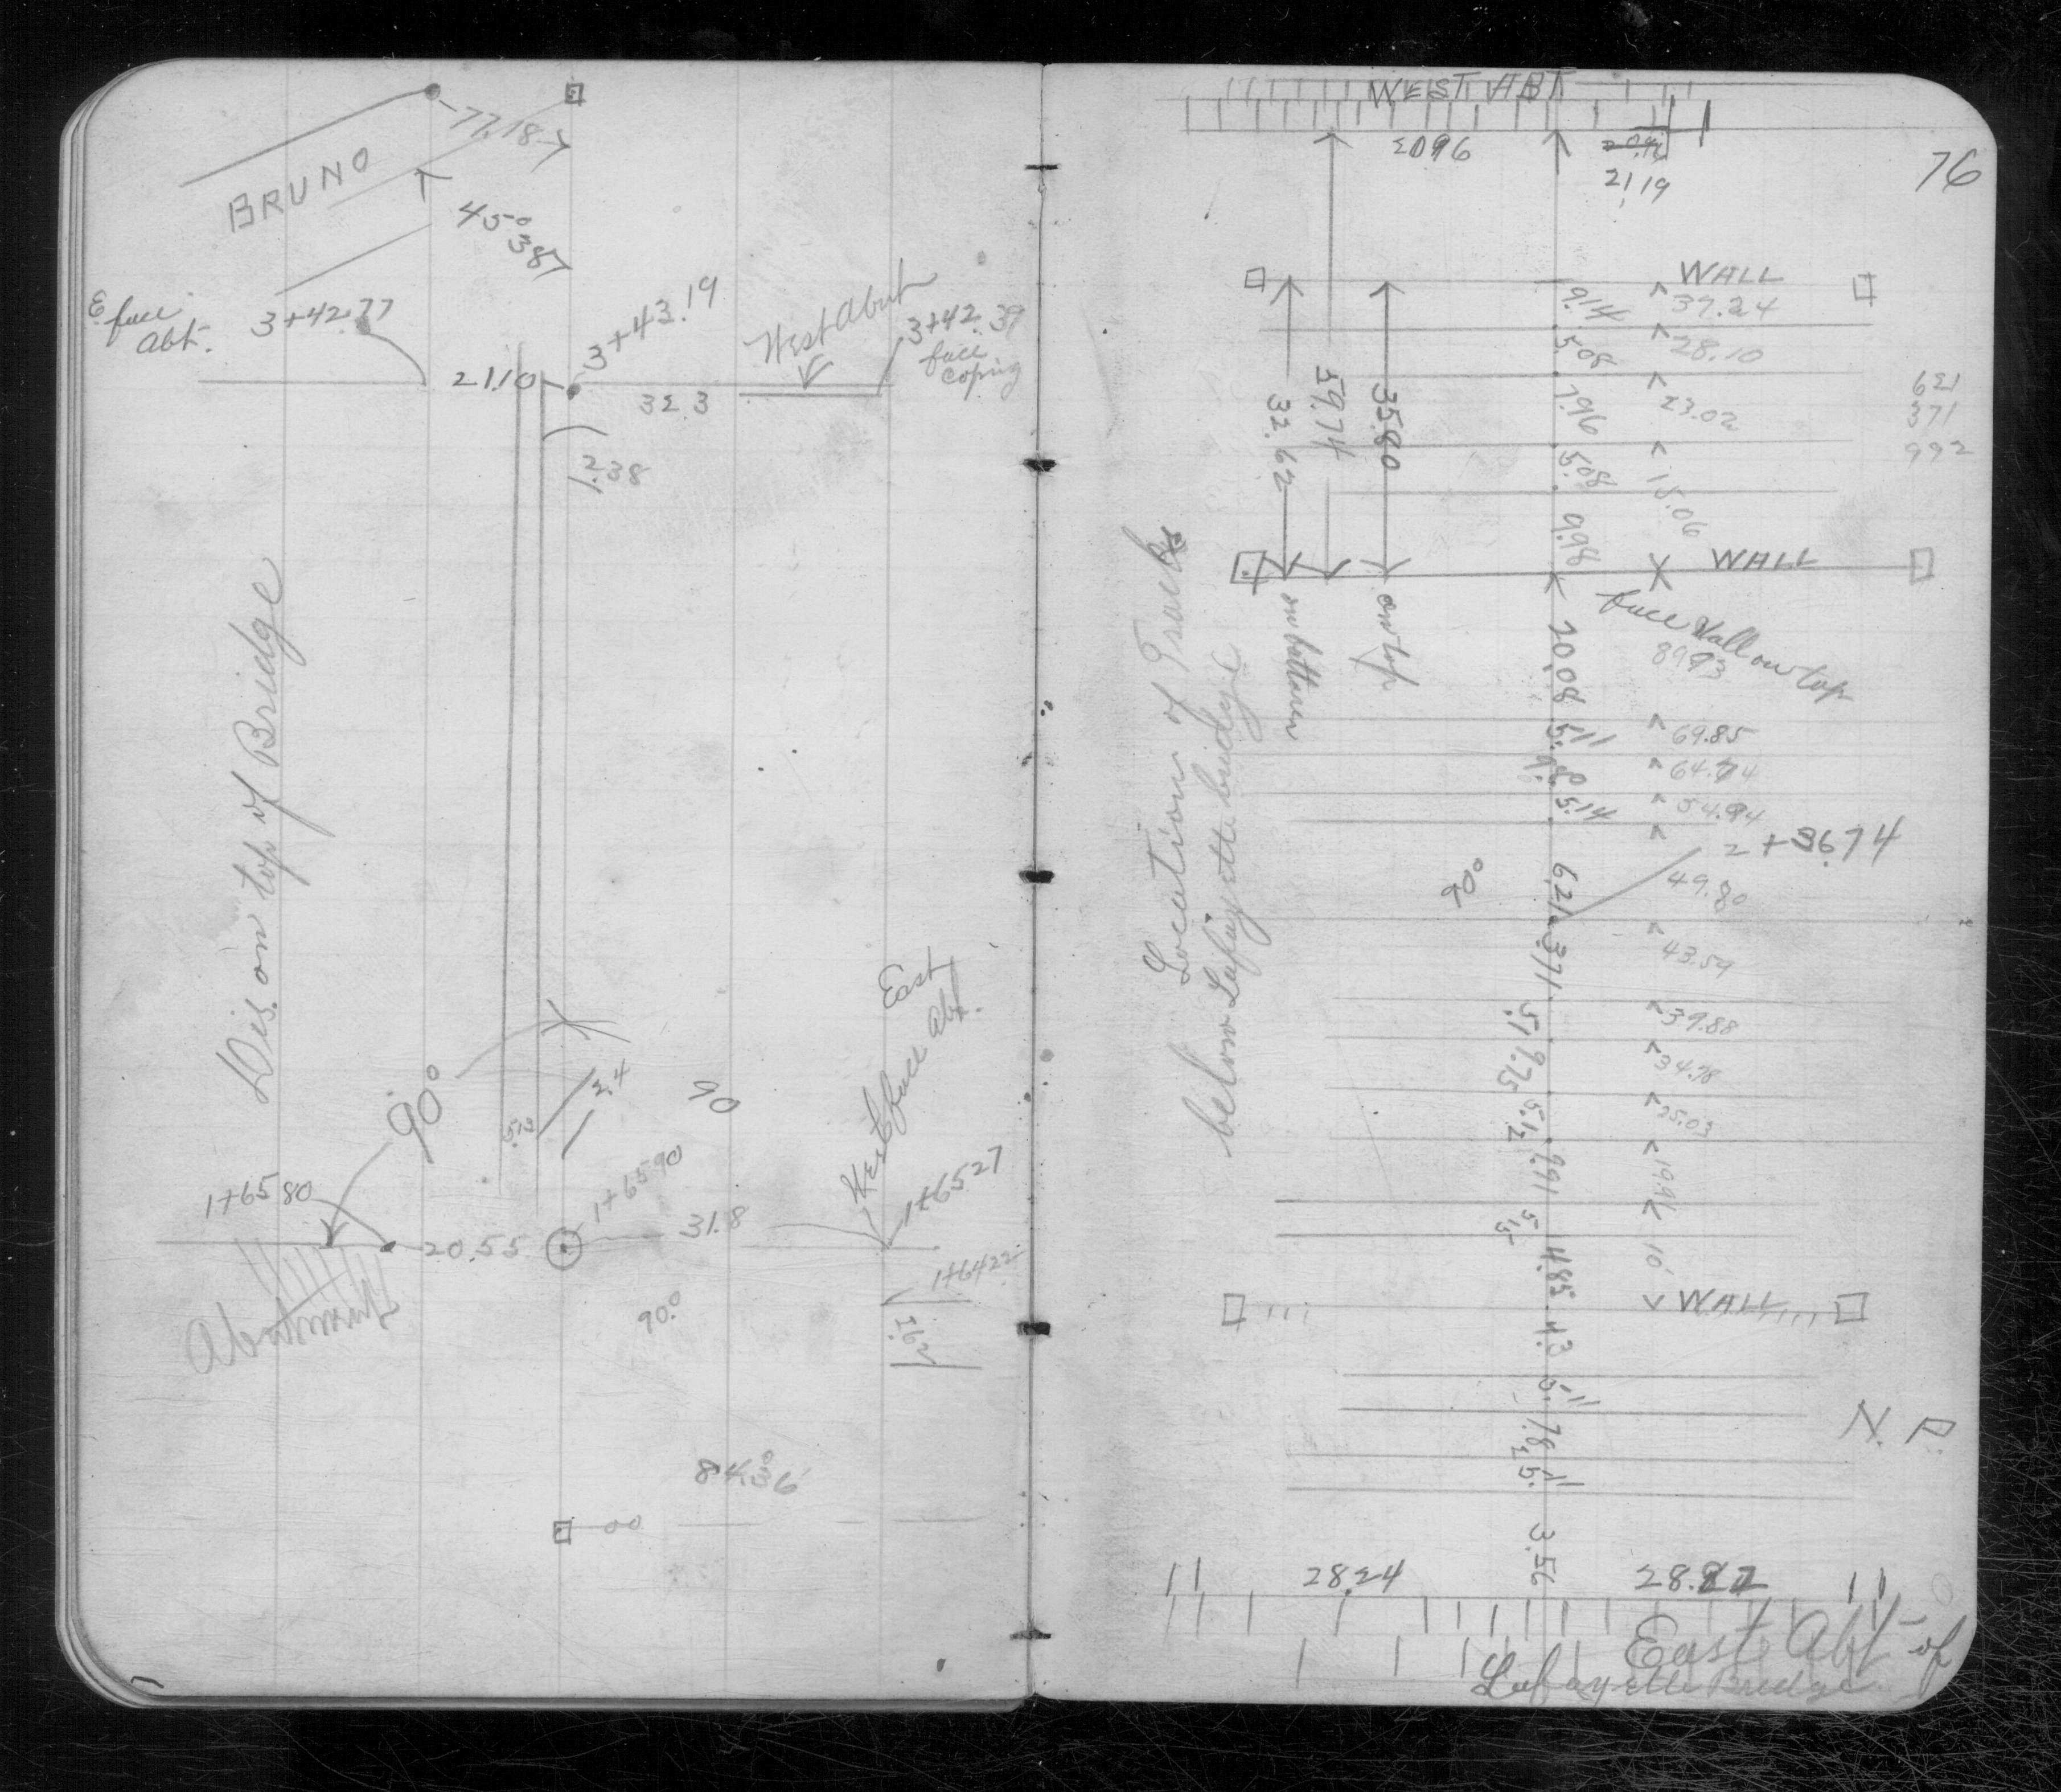 77.18
BRUNO
45° 38'
E face
Abt.
3+42.77
3+43.19
West Abut
3+42.39
face
coping
21.10
32.3
12.38
Dis. on top of Bridge
East
Abt.
West face
90°
2.4
90
5.13
1+65.90
1+65.80
1+65.27
20.55
31.8
1+64.22
Abutment
90°
84.36
00
WEST ABT
76
2096
21.19
WALL
9.14
37.24
5.08
28.10
7.96
23.02
5.08
15.06
9.98
621
371
992
32.62
39.74
35.80
WALL
on bottom
on top
face Wall on top
89.93
20.08
5.11
69.85
9.8
64.74
5.14
54.94
2+36.74
49.80
90°
6.21
43.59
3.71
39.88
5.1
34.78
9.75
25.03
5.12
19.91
9.91
10'
5.15
4.85
Location of Tracks
below Lafayette bridge
WALL
4.3
5.11
7.82
5.11
N. P.
3.56
28.24
28.82
East Abt - of
Lafayette Bridge